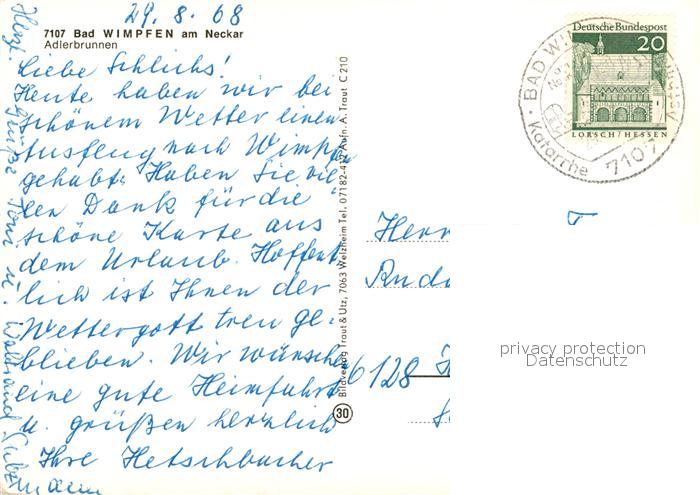 29. 8. 68
7107 Bad WIMPFEN am Neckar
Adlerbrunnen
Liebe Schlichs!
Heute haben wir bei
schönem Wetter einen
Ausflug nach Wimpfen
gehabt. Haben Sie vie-
len Dank für die
schöne Karte aus
dem Urlaub. Hoffent-
lich ist Ihnen der
Wettergott treu ge-
blieben. Wir wünschen
eine gute Heimfahrt
u. grüßen herzlich
Ihre Hetschbacher
Herzl. Grüße Toni u.
Bildverlag Traut & Utz, 7063 Welzheim Tel. 07182-4 Aufn. A. Traut C 210
30
Deutsche Bundespost
20
LORSCH/HESSEN
BAD WI
Katarrhe
7107
Herr
Rudi
6128
privacy protection
Datenschutz